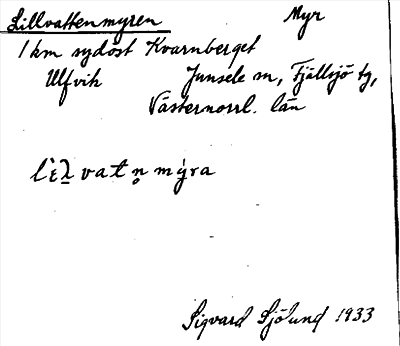 Lillvattenmyren Myr
1 km sydost Kvarnberget
Ulfvik Junsele sn, Fjällsjö tg,
Västernorrl. län
lìɛ̱λ vat n̥ mýra
Sigvard Sjölund 1933